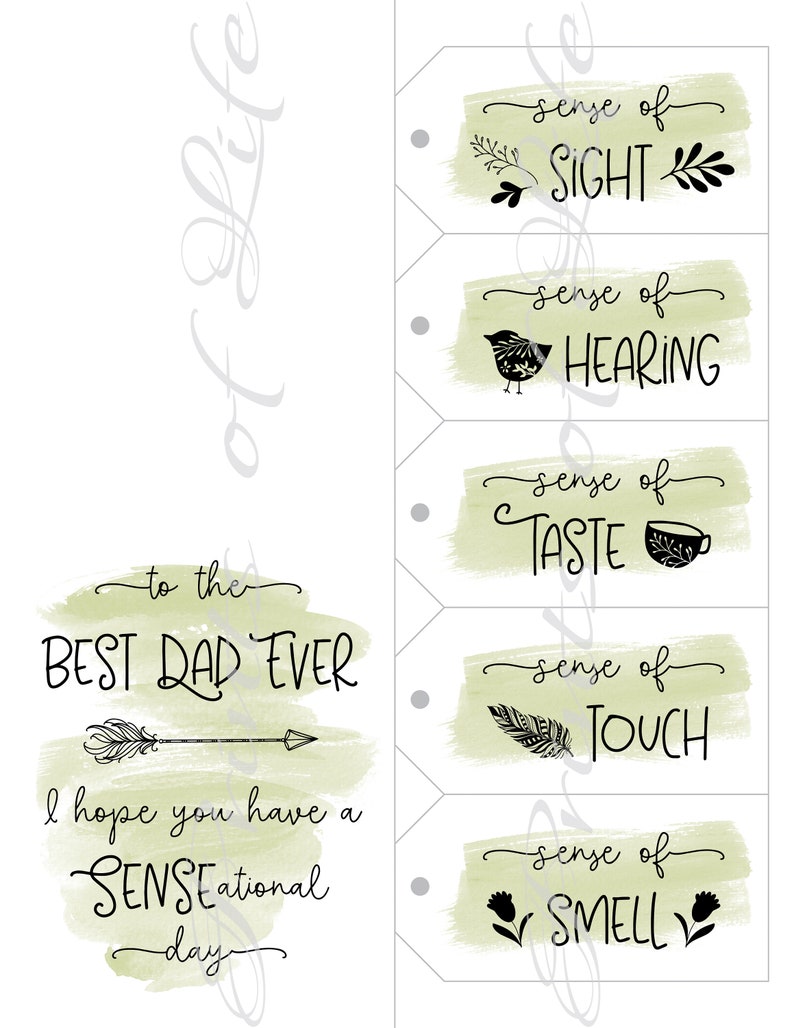 to the
BEST DAD EVER
I hope you have a
SENSEational
day
sense of
SiGHT
sense of
HEARiNG
sense of
TASTE
sense of
TOUCH
sense of
SMELL
Prints of Life
Prints of Life